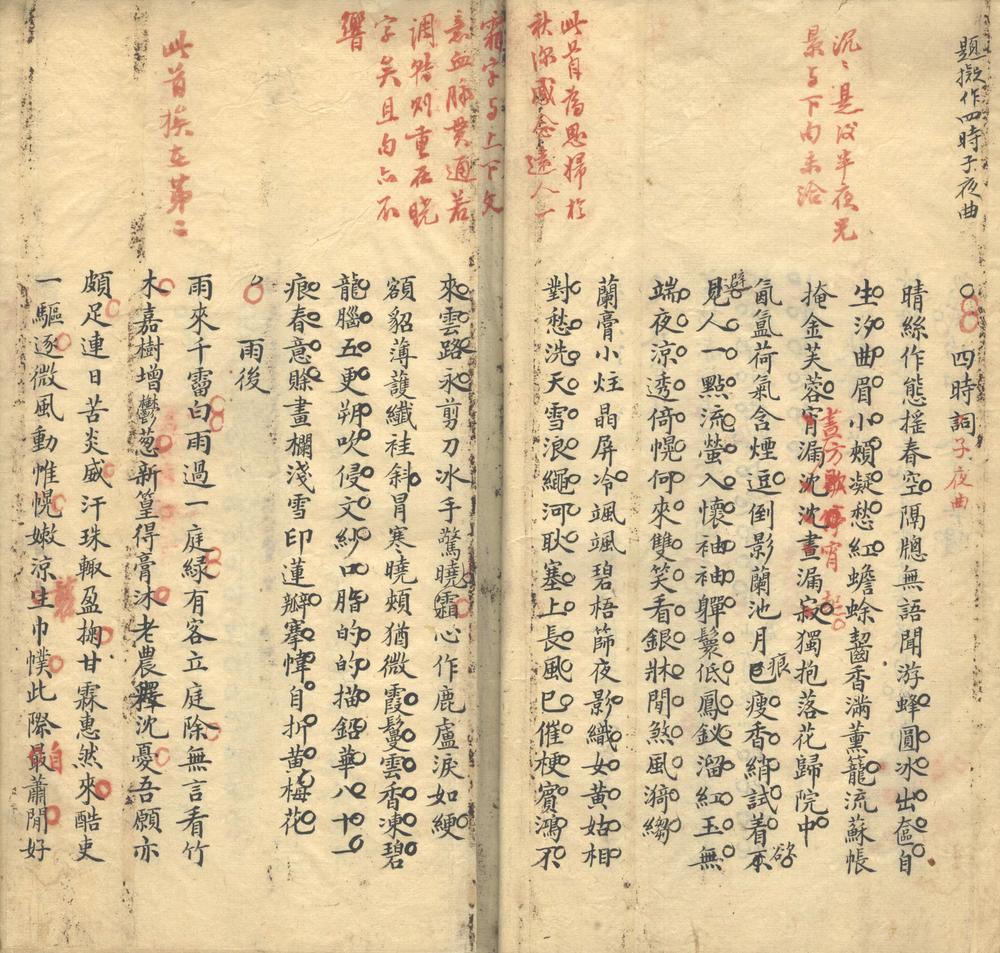 題擬作四時子夜曲
沉〻是後半夜光
景与下句未洽
此首為思婦於
秋深感念遠人一
霜字与上下文
意血脉貫通若
調哰則重在曉
字矣且句亦不
響
此首挨在第二
四時詞子夜曲
晴絲作態搖春空隔牕無語聞游蜂圓冰出奩自
生汐曲眉小頰凝愁紅蟾蜍齧香滿薰籠流蘇帳
掩金芙蓉宵漏沈沈晝漏寂獨抱落花歸院中
晝方歇 宵
氤氳荷氣含煙逗倒影蘭池月痕瘦香綃試着不欲
見避人一點流螢入懷袖袖嚲鬟低鳳釵溜紅玉無
端夜涼透倚幌何來雙笑看銀牀閒煞風漪縐
蘭膏小炷晶屏冷颯颯碧梧篩夜影織女黃姑相
對愁洗天雪浪繩河耿塞上長風已催梗賓鴻不
來雲路永剪刀冰手驚曉霜心作鹿盧淚如綆
額貂薄護纖袿斜冐寒曉頰猶微霞鬘雲香凍碧
龍腦五更朔吹侵文紗口脂的的描鉛華八十一
痕春意賒畫欄淺雪印蓮瓣搴幃自折黃梅花
雨後
雨來千霤白雨過一庭綠有客立庭除無言看竹
木嘉樹增鬱葱新篁得膏沐老農釋沈憂吾願亦
頗足連日苦炎威汗珠輙盈掬甘霖惠然來酷吏
一驅逐微風動惟幌嫩涼生巾幞此際最蕭閒好
自